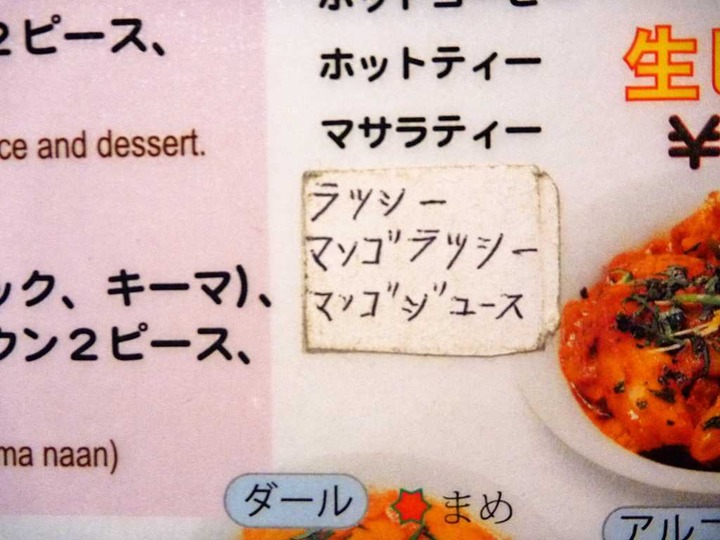 2ピース、
ce and dessert.
ック、キーマ)、
ウン2ピース、
ma naan)
ホットコーヒー
ホットティー
マサラティー
ラッシー
マンゴラッシー
マンゴジュース
生
大
ダール
まめ
アル